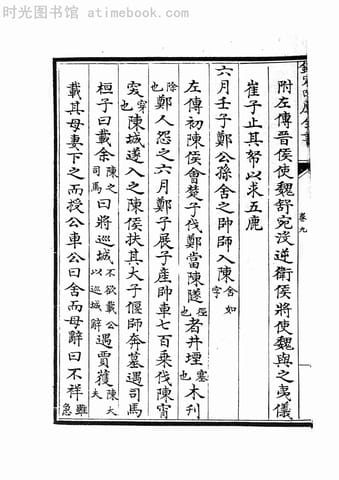 时光图书馆 www.atimebook.com
卷九
附左傳晉侯使魏舒宛沒逆衛侯將使魏與之夷儀
崔子止其帑以求五鹿
六月壬子鄭公孫舍之帥師入陳舍如字
左傳初陳侯會楚子伐鄭當陳隧徑也者井堙塞也木刊
除也鄭人怨之六月鄭子展子產帥車七百乘伐陳宵
突穿也陳城遂入之陳侯扶其大子偃師奔墓遇司馬
桓子曰載余陳之司馬曰將巡城不欲載公以巡城辭遇賈獲陳大夫
載其母妻下之而授公車公曰舍而母辭曰不祥雖急